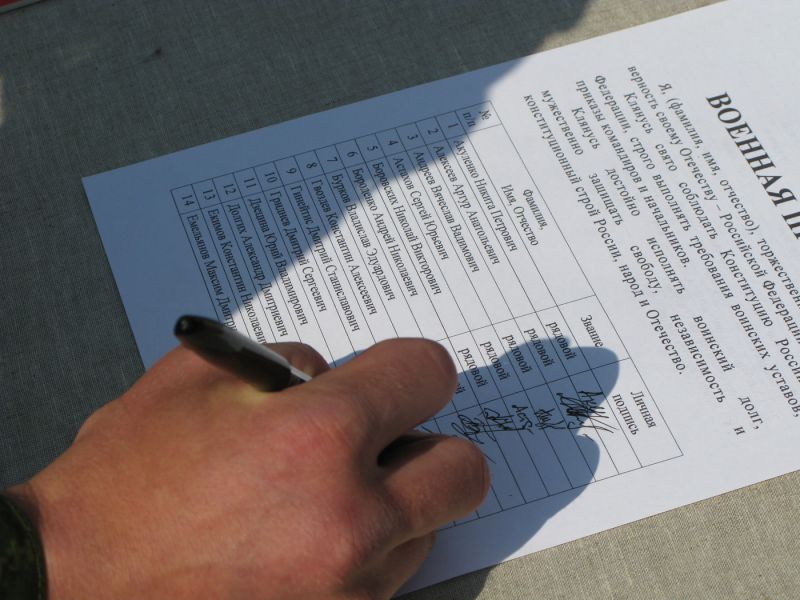 ВОЕННАЯ
Я, (фамилия, имя, отчество), торжественно
верность своему Отечеству – Российской Федерации.
Клянусь свято соблюдать Конституцию Российской
Федерации, строго выполнять требования воинских уставов,
приказы командиров и начальников.
Клянусь достойно исполнять воинский долг,
мужественно защищать свободу, независимость и
конституционный строй России, народ и Отечество.
№ п/п Фамилия, Имя, Отчество Звание Личная подпись
1 Акуленко Никита Петрович рядовой
2 Алексеев Артур Анатольевич рядовой
3 Андреев Вячеслав Вадимович рядовой
4 Астахов Сергей Юрьевич рядовой
5 Боровских Николай Викторович рядовой
6 Бороденко Андрей Николаевич
7 Бурков Владислав Эдуардович
8 Гвоздев Константин Алексеевич
9 Дмитрий Станиславович
10 Гриднев Дмитрий Сергеевич
11 Юрий Владимирович
12 Долгих Александр Дмитриевич
13 Екимов Константин Николаевич
14 Емельянов Максим